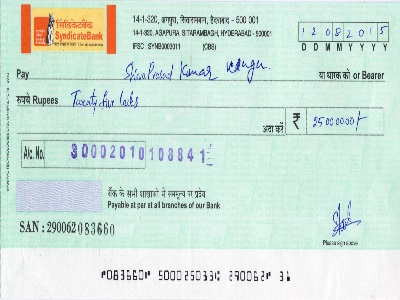 सिंडिकेटबैंक
SyndicateBank
14-1-320, अगपुरा, सितारामबाग, हैदराबाद - 500 001
14-1-320, AGAPURA, SITARAMBAGH, HYDERABAD - 500001
IFSC: SYNB0003011 (CBS)
12082015
D D M M Y Y Y Y
Pay Shiva Prasad Kumar या धारक को or Bearer
रुपये Rupees Twenty five lacs
अदा करें ₹ 2500000/-
A/c. No. 30002010108841
बैंक के सभी शाखाओं में सममूल्य पर प्रदेय
Payable at par at all branches of our Bank
SAN : 290062083660
Please sign above
⑈083660⑈ 500025033⑆ 290062⑈ 31